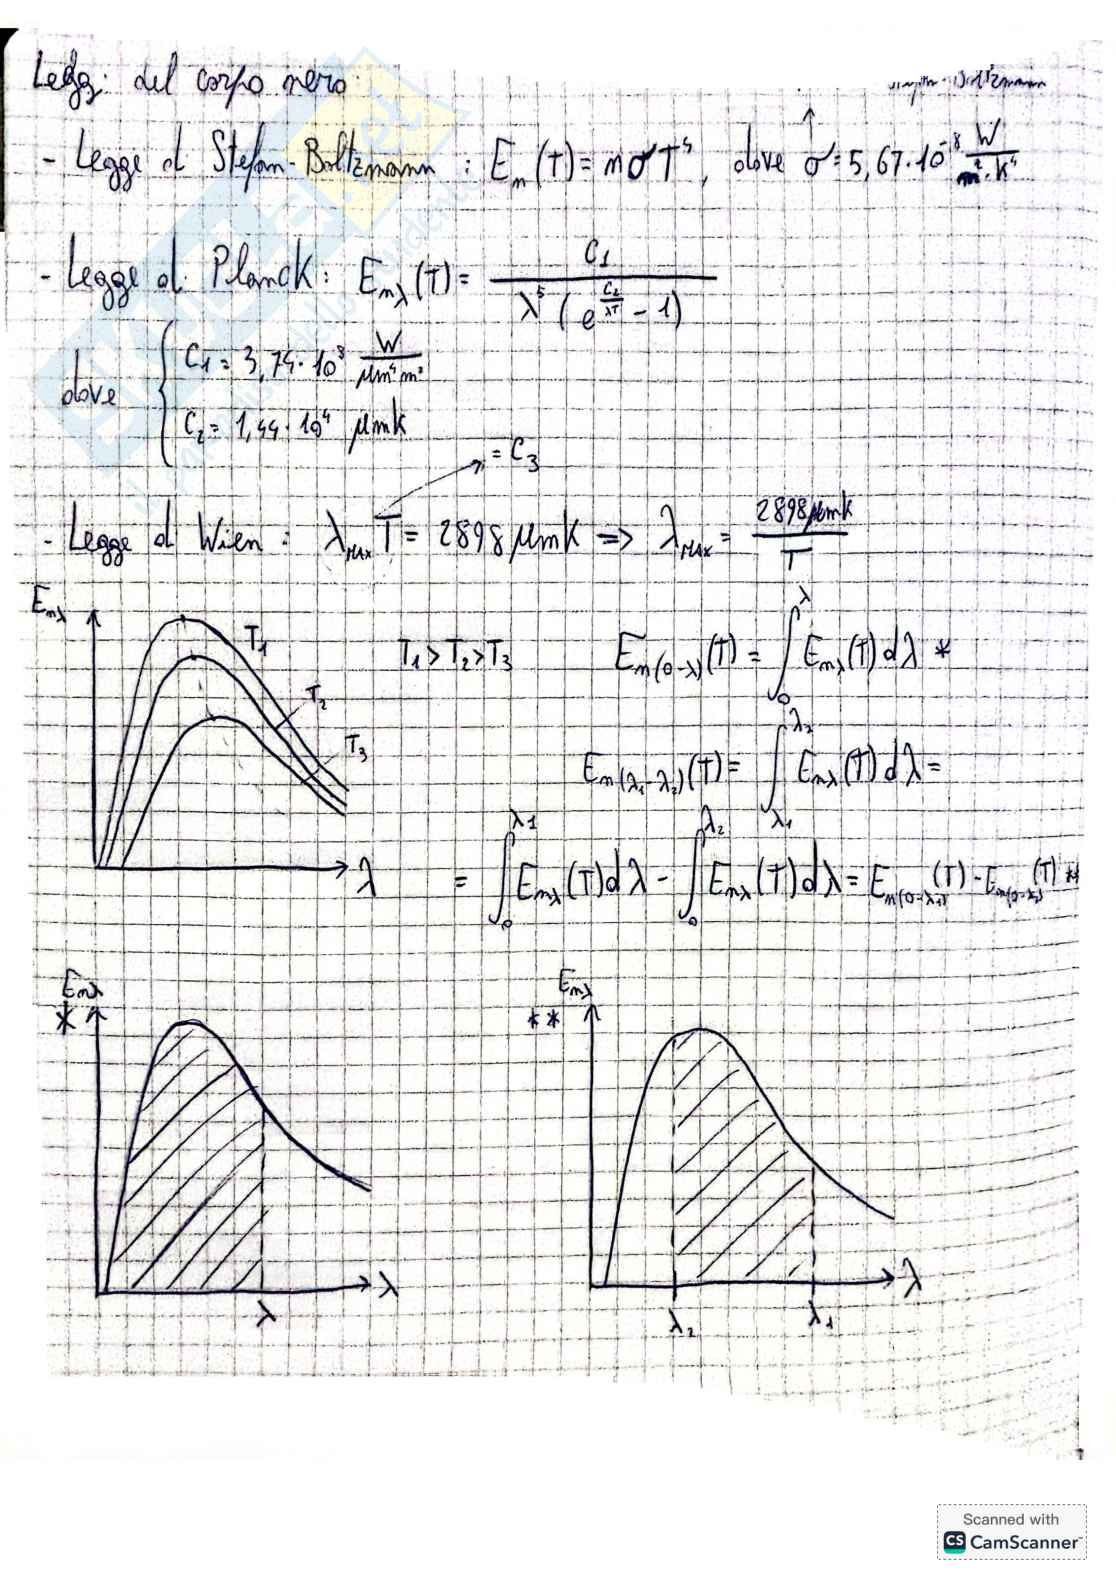 Leggi del corpo nero:
Boltzmann
- Legge di Stefan-Boltzmann : Eₙ(T) = nσT⁴, dove σ = 5,67·10⁻⁸ W/(m²·K⁴)
- Legge di Planck: Eₙλ(T) = C₁ / (λ⁵ (e^(C₂/λT) - 1))
dove { C₁ = 3,74·10⁸ W/μm⁴m²
C₂ = 1,44·10⁴ μmk
= C₃
- Legge di Wien : λMAX T = 2898 μmk => λMAX = 2898μmk / T
Eₙλ
T₁
T₂
T₃
λ
T₁ > T₂ > T₃
Eₙ(0-λ)(T) = ∫₀^λ Eₙλ(T) dλ *
Eₙ(λ₁-λ₂)(T) = ∫λ₁^λ₂ Eₙλ(T) dλ =
= ∫₀^λ₁ Eₙλ(T) dλ - ∫₀^λ₂ Eₙλ(T) dλ = Eₙ(0-λ₁)(T) - Eₙ(0-λ₂)(T) **
Eₙλ
*
λ
λ
Eₙλ
**
λ
λ₂
λ₁
Scanned with
CS CamScanner